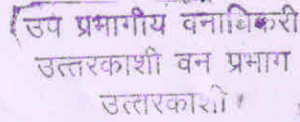 (उप प्रभागीय वनाधिकरी
उत्तरकाशी वन प्रभाग
उत्तरकाशी।